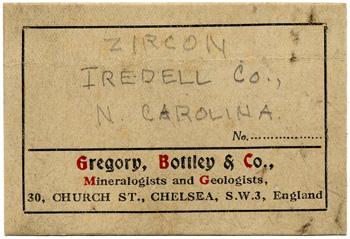 ZIRCON
IREDELL CO.,
N. CAROLINA.
No.................
Gregory, Bottley & Co.,
Mineralogists and Geologists,
30, CHURCH ST., CHELSEA, S.W.3, England